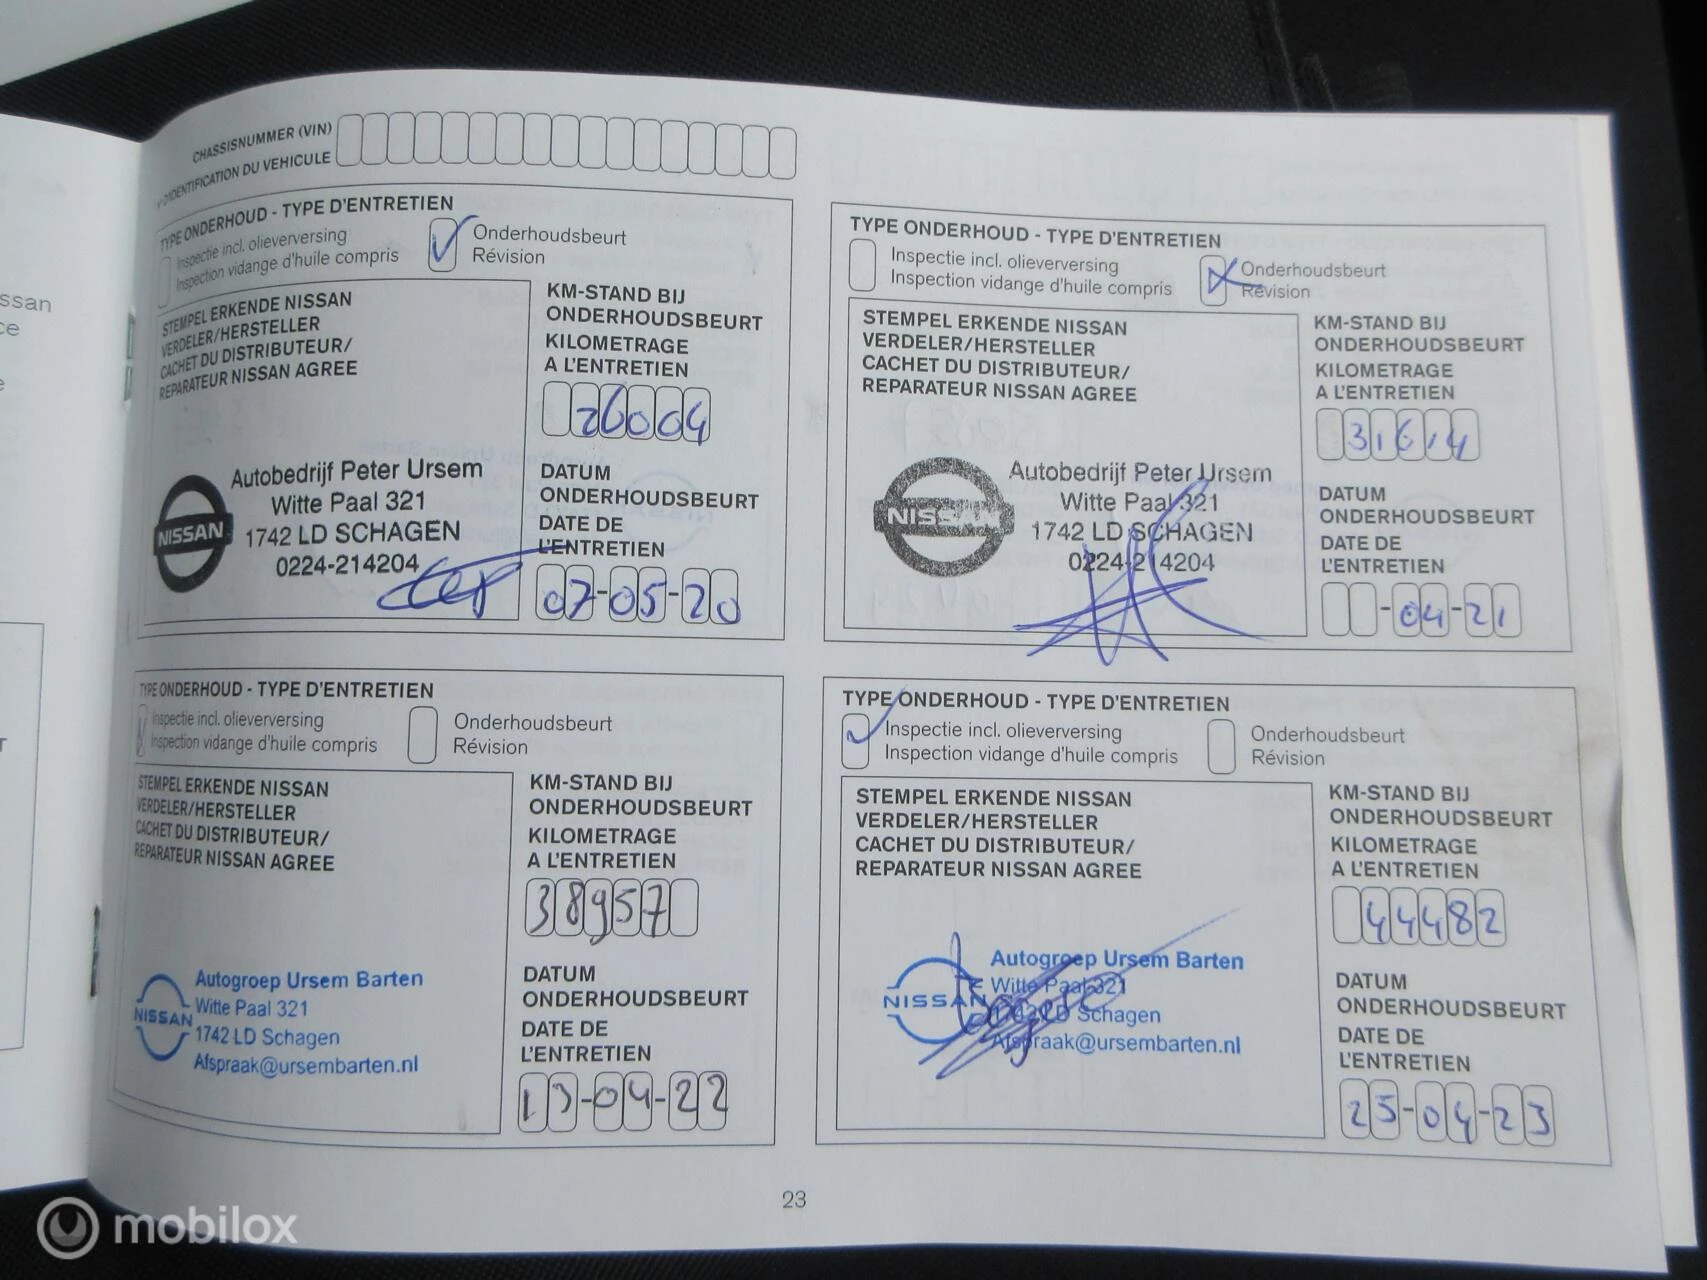 ssan
ce
e
CHASSISNUMMER (VIN)
D'IDENTIFICATION DU VEHICULE
TYPE ONDERHOUD - TYPE D'ENTRETIEN
Inspectie incl. olieverversing
Inspection vidange d'huile compris
Onderhoudsbeurt
Révision
STEMPEL ERKENDE NISSAN
VERDELER/HERSTELLER
CACHET DU DISTRIBUTEUR/
REPARATEUR NISSAN AGREE
KM-STAND BIJ
ONDERHOUDSBEURT
KILOMETRAGE
A L'ENTRETIEN
26004
Autobedrijf Peter Ursem
Witte Paal 321
1742 LD SCHAGEN
0224-214204
NISSAN
DATUM
ONDERHOUDSBEURT
DATE DE
L'ENTRETIEN
07-05-20
TYPE ONDERHOUD - TYPE D'ENTRETIEN
Inspectie incl. olieverversing
Inspection vidange d'huile compris
Onderhoudsbeurt
Révision
STEMPEL ERKENDE NISSAN
VERDELER/HERSTELLER
CACHET DU DISTRIBUTEUR/
REPARATEUR NISSAN AGREE
KM-STAND BIJ
ONDERHOUDSBEURT
KILOMETRAGE
A L'ENTRETIEN
31614
Autobedrijf Peter Ursem
Witte Paal 321
1742 LD SCHAGEN
0224-214204
NISSAN
DATUM
ONDERHOUDSBEURT
DATE DE
L'ENTRETIEN
-04-21
TYPE ONDERHOUD - TYPE D'ENTRETIEN
Inspectie incl. olieverversing
Inspection vidange d'huile compris
Onderhoudsbeurt
Révision
STEMPEL ERKENDE NISSAN
VERDELER/HERSTELLER
CACHET DU DISTRIBUTEUR/
REPARATEUR NISSAN AGREE
KM-STAND BIJ
ONDERHOUDSBEURT
KILOMETRAGE
A L'ENTRETIEN
38957
Autogroep Ursem Barten
Witte Paal 321
1742 LD Schagen
Afspraak@ursembarten.nl
NISSAN
DATUM
ONDERHOUDSBEURT
DATE DE
L'ENTRETIEN
13-04-22
TYPE ONDERHOUD - TYPE D'ENTRETIEN
Inspectie incl. olieverversing
Inspection vidange d'huile compris
Onderhoudsbeurt
Révision
STEMPEL ERKENDE NISSAN
VERDELER/HERSTELLER
CACHET DU DISTRIBUTEUR/
REPARATEUR NISSAN AGREE
KM-STAND BIJ
ONDERHOUDSBEURT
KILOMETRAGE
A L'ENTRETIEN
44482
Autogroep Ursem Barten
Witte Paal 321
1742 LD Schagen
Afspraak@ursembarten.nl
NISSAN
DATUM
ONDERHOUDSBEURT
DATE DE
L'ENTRETIEN
25-04-23
23
mobilox